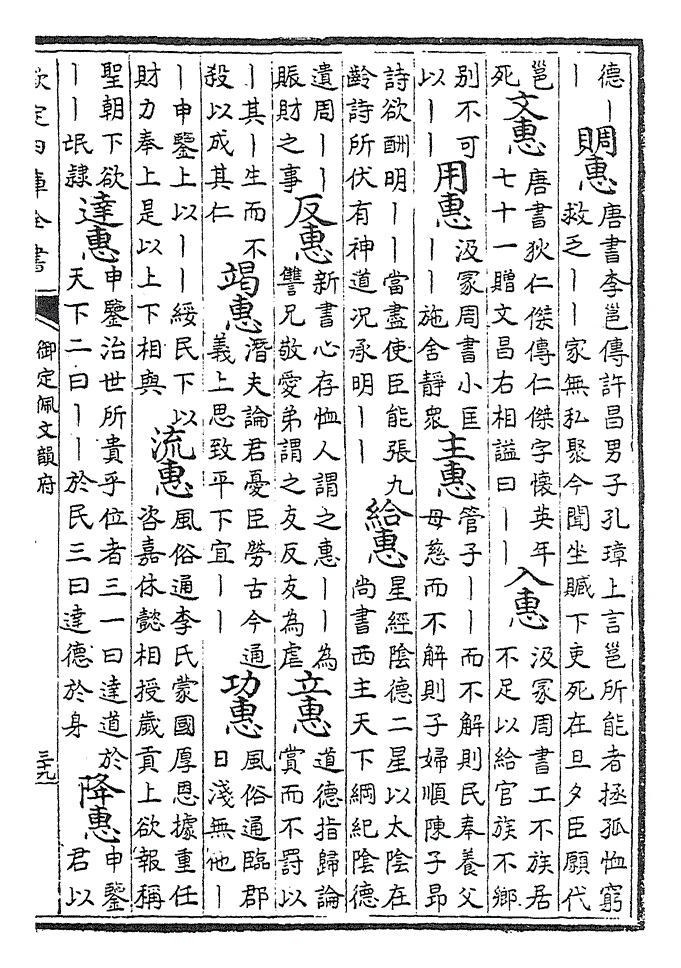 德｜｜賙惠唐書李邕傳許昌男子孔璋上言邕所能者拯孤恤窮救乏｜｜家無私聚今聞坐贓下吏死在旦夕臣願代
邕死文惠唐書狄仁傑傳仁傑字懷英年七十一贈文昌右相謚曰｜｜入惠汲冢周書工不族居不足以給官族不鄉
別不可以｜｜用惠汲冢周書小匡｜｜施舍靜衆主惠管子｜｜而不解則民奉養父母慈而不解則子婦順陳子昂
詩欲酬明｜｜當盡使臣能張九齡詩所伏有神道况承明｜｜給惠星經陰德二星以太陰在尚書西主天下綱紀陰德
遺周｜｜賑財之事反惠新書心存恤人謂之惠｜｜為讐兄敬愛弟謂之友反友為虐立惠道德指歸論賞而不罰以
｜其｜生而不殺以成其仁竭惠潛夫論君憂臣勞古今通義上思致平下宜｜｜功惠風俗通臨郡日淺無他｜
｜申鑒上以｜｜綏民下以財力奉上是以上下相與流惠風俗通李氏蒙國厚恩據重任咨嘉休懿相授歲貢上欲報稱
聖朝下欲｜｜氓隸達惠申鑒治世所貴乎位者三一曰達道於天下二曰｜｜於民三曰達德於身降惠申鑒君以
欽定四庫全書
御定佩文韻府